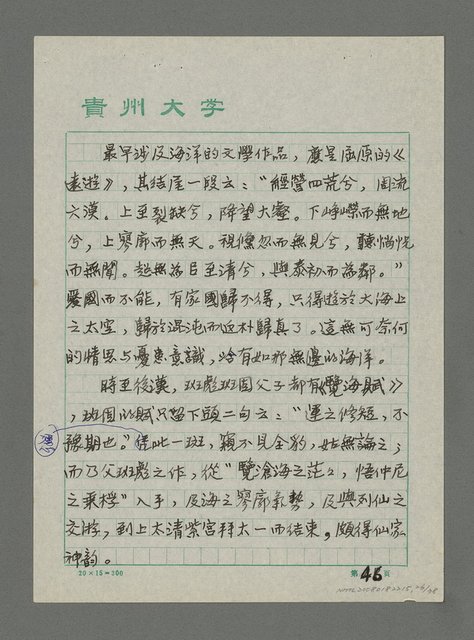 貴州大学
最早涉及海洋的文學作品，應是屈原的《
遠遊》，其結尾一段云：“經營四荒兮，周流
六漠。上至裂缺兮，降望大壑。下崢嶸而無地
兮，上寥廓而無天。視儵忽而無見兮，聽惝怳
而無聞。超無為以至清兮，與泰初而為鄰。”
愛國而不能，有家國歸不得，只得遊於大海上
之太空，歸於混沌而返朴歸真了。這無可奈何
的情思与憂患意識，恰有如那無邊的海洋。
時至後漢，班彪班固父子都有《覽海賦》
，班固的賦只留下頭二句云：“運之修短，不
豫期也。”憑此一斑，窺不見全豹，姑無論之；
而乃父班彪之作，從“覽滄海之茫々，悟仲尼
之乘桴”入手，及海之寥廓氣勢，及與列仙之
交游，到上太清紫宮拜太一而結束，頗得仙家
神韵。
20×15＝300
第46頁